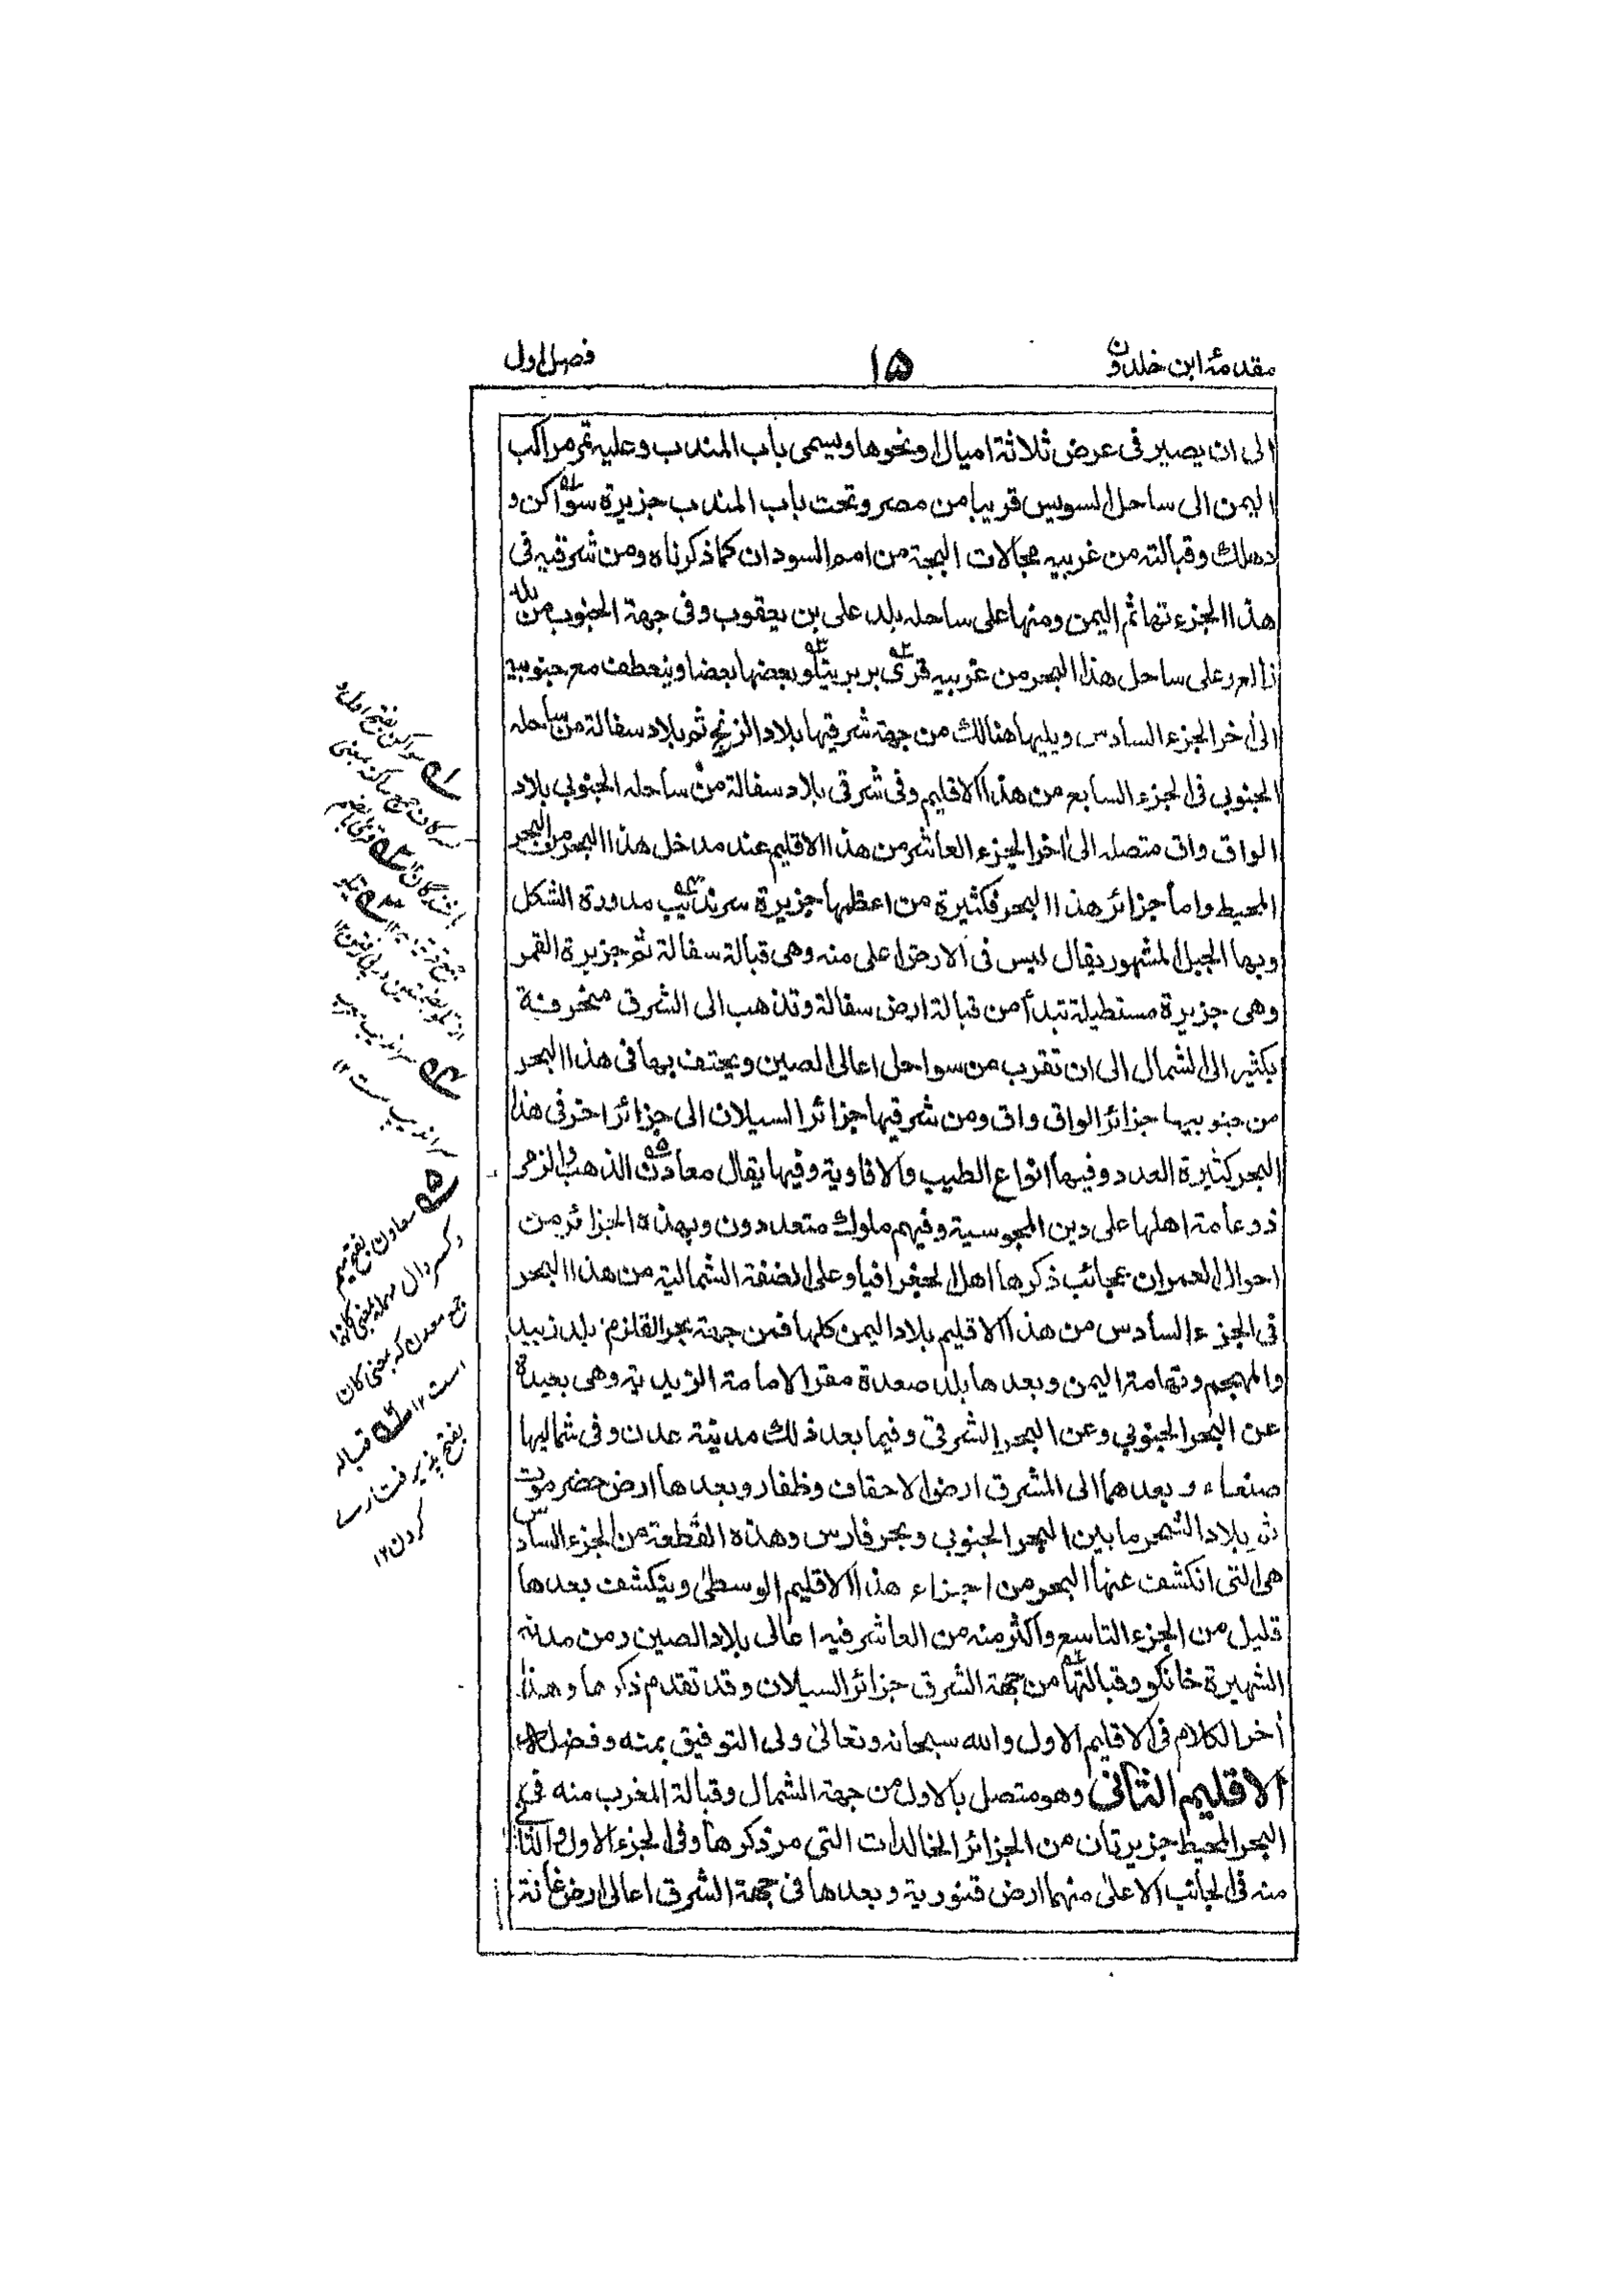 مقدمۂ ابن خلدون
١٥
فصل اول
الى ان يصير فى عرض ثلاثة اميال او نحوها ويسمى باب المندب وعليه تمر مراكب
اليمن الى ساحل السويس قريبا من مصر وتحت باب المندب جزيرة سواكن و
دهلك وقبالته من غربيه مجالات البجة من امم السودان كما ذكرناه ومن شرقيه فى
هذا الجزء تهائم اليمن ومنها على ساحله بلد على بن يعقوب وفى جهة الجنوب من بلد
زالع وعلى ساحل هذا البحر من غربيه قرى بربر يتلو بعضها بعضا وينعطف مع جنوبيه
الى اٰخر الجزء السادس ويليها هنالك من جهة شرقيها بلاد الزنج ثم بلاد سفالة من ساحله
الجنوبي فى الجزء السابع من هذا الاقليم وفى شرقى بلاد سفالة من ساحله الجنوبي بلاد
الواق واق متصله الى اٰخر الجزء العاشر من هذا الاقليم عند مدخل هذا البحر من البحر
المحيط واما جزائر هذا البحر فكثيرة من اعظمها جزيرة سرنديب مدورة الشكل
وبها الجبل المشهور يقال ليس فى الارض اعلى منه وهى قبالة سفالة ثم جزيرة القمر
وهى جزيرة مستطيلة تبدأ من قبالة ارض سفالة وتذهب الى الشرق منحرفة
بكثير الى الشمال الى ان تقرب من سواحل اعالى الصين ويحتف بها فى هذا البحر
من جنوبيها جزائر الواق واق ومن شرقيها جزائر السيلان الى جزائر اخر فى هذا
البحر كثيرة العدد وفيها انواع الطيب والافاوية وفيها يقال معادن الذهب والزمر
ذ وعامة اهلها على دين المجوسية وفيهم ملوك متعددون وبهذه الجزائر من
احوال العمران عجائب ذكرها اهل الجغرافيا وعلى الضفة الشمالية من هذا البحر
فى الجزء السادس من هذا الاقليم بلاد اليمن كلها فمن جهة بحر القلزم بلد زبيد
والمهجم وتهامة اليمن وبعدها بلد صعدة مقر الامامة الزيدية وهى بعيدة
عن البحر الجنوبي وعن البحر الشرقى وفيما بعد ذلك مدينة عدن وفى شماليها
صنعاء وبعدهما الى المشرق ارض الاحقاف وظفار وبعدها ارض حضرموت
ثم بلاد الشحر ما بين البحر الجنوبي وبحر فارس وهذه القطعة من الجزء السادس
هى التى انكشفت عنها البحر من اجزاء هذا الاقليم الوسطى وينكشف بعدها
قليل من الجزء التاسع واكثر منه من العاشر فيه اعالى بلاد الصين ومن مدنه
الشهيرة خانكو وقبالتها من جهة الشرق جزائر السيلان وقد تقدم ذكرها وهذا
اٰخر الكلام فى الاقليم الاول والله سبحانه وتعالى ولى التوفيق بمنه وفضله
الاقليم الثانى وهو متصل بالاول من جهة الشمال وقبالة المغرب منه فى
البحر المحيط جزيرتان من الجزائر الخالدات التى مر ذكرها وفى الجزء الاول والثانى
منه فى الجانب الاعلى منهما ارض قنورية وبعدها فى جهة الشرق اعالى ارض غانة
سواكن بفتح اول و
كاف جمع ساكنه بمعنى
باشندگان
سرانديب ست ١٢
معادن بفتح ميم
وكسر دال مهمله بمعنى كانها
جمع معدن كه بمعنى كان
است ١٢ قباله
بفتح پذيرفتارے
كردن ١٢